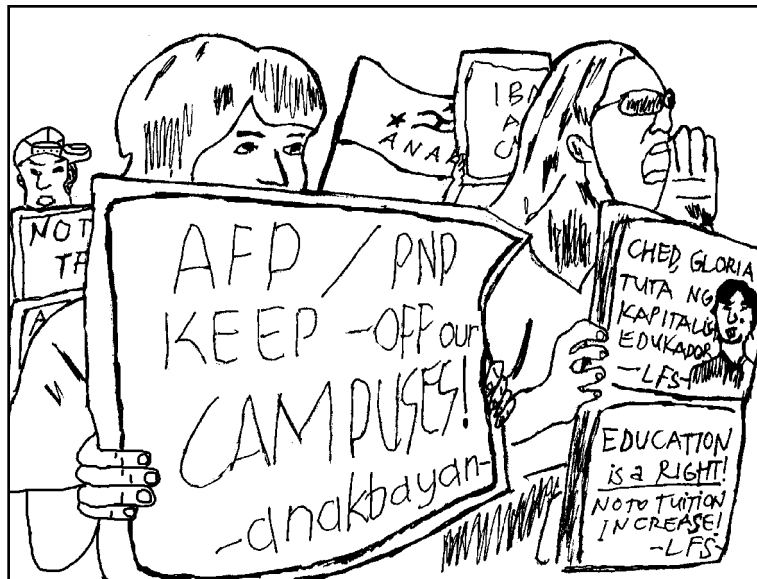 NOT
ANA
IBA
AFP / PNP
KEEP -OFF our
CAMPUSES!
-anakbayan-
CHED, GLORIA
TUTA NG
EDUKADOR
-LFS-
EDUCATION
is a RIGHT!
NO TO TUITION
INCREASE!
-LFS-